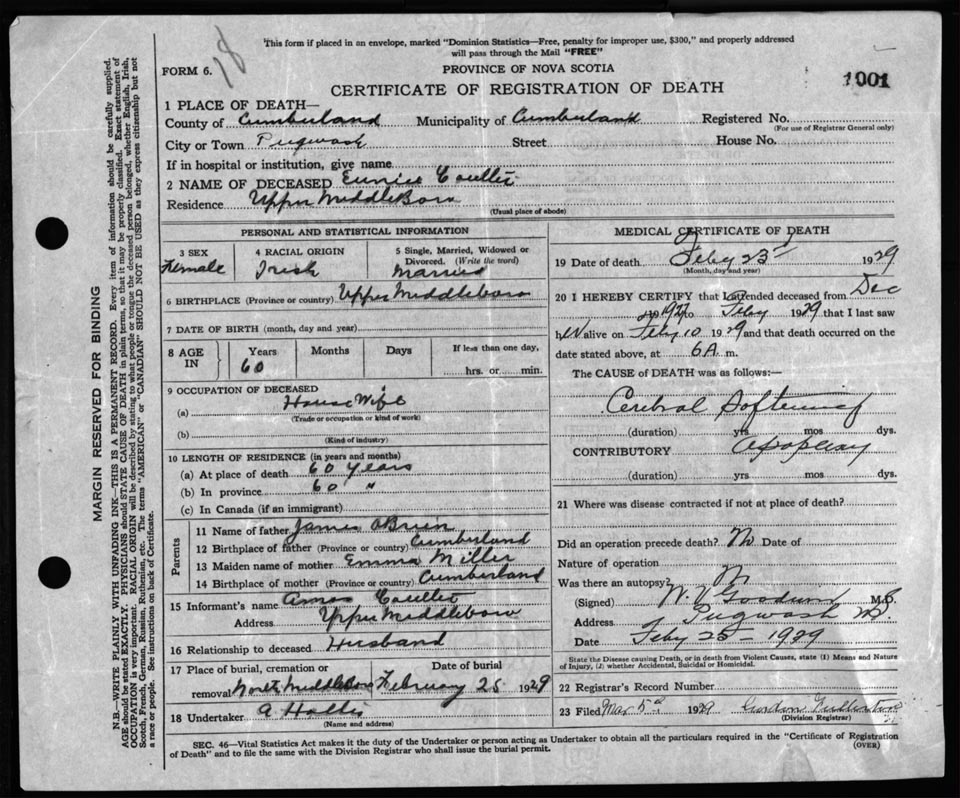 18
This form if placed in an envelope, marked "Dominion Statistics—Free, penalty for improper use, $300," and properly addressed
will pass through the Mail "FREE"
FORM 6.
PROVINCE OF NOVA SCOTIA
CERTIFICATE OF REGISTRATION OF DEATH
1001
MARGIN RESERVED FOR BINDING
N.B.—WRITE PLAINLY WITH UNFADING INK—THIS IS A PERMANENT RECORD. Every item of information should be carefully supplied.
AGE should be stated EXACTLY. PHYSICIANS should STATE CAUSE OF DEATH in plain terms, so that it may be properly classified. Exact statement of
OCCUPATION is very important. RACIAL ORIGIN will be described by stating to what people or tongue the deceased person belonged, whether English, Irish,
Scotch, French, German, Russian, Ruthenian, etc. The terms "AMERICAN" or "CANADIAN" SHOULD NOT BE USED as they express citizenship but not
a race or people. See instructions on back of Certificate.
1 PLACE OF DEATH—
County of Cumberland Municipality of Cumberland Registered No.
(For use of Registrar General only)
City or Town Pugwash Street House No.
If in hospital or institution, give name
2 NAME OF DECEASED Eunice Coulter
Residence Upper Middleboro
(Usual place of abode)
PERSONAL AND STATISTICAL INFORMATION
3 SEX Female
4 RACIAL ORIGIN Irish
5 Single, Married, Widowed or
Divorced. (Write the word)
Married
6 BIRTHPLACE (Province or country) Upper Middleboro
7 DATE OF BIRTH (month, day and year)
8 AGE IN Years 60 Months Days If less than one day,
hrs. or min.
9 OCCUPATION OF DECEASED
(a) House Wife
(Trade or occupation or kind of work)
(b)
(Kind of industry)
10 LENGTH OF RESIDENCE (in years and months)
(a) At place of death 60 years
(b) In province 60 "
(c) In Canada (if an immigrant)
Parents
11 Name of father James O'Brien
12 Birthplace of father (Province or country) Cumberland
13 Maiden name of mother Emma Miller
14 Birthplace of mother (Province or country) Cumberland
15 Informant's name Amos Coulter
Address Upper Middleboro
16 Relationship to deceased Husband
17 Place of burial, cremation or
removal North Middleboro
Date of burial
February 25 1929
18 Undertaker A Hollis
(Name and address)
MEDICAL CERTIFICATE OF DEATH
19 Date of death Feby 23d 1929
(Month, day and year)
20 I HEREBY CERTIFY that I attended deceased from Dec
1927 to Feby 1929 that I last saw
her alive on Feby 10 1929 and that death occurred on the
date stated above, at 6 A m.
The CAUSE of DEATH was as follows:—
Cerebral Softening
(duration) yrs mos dys.
CONTRIBUTORY Apoplexy
(duration) yrs mos dys.
21 Where was disease contracted if not at place of death?
Did an operation precede death? No Date of
Nature of operation
Was there an autopsy? No
(Signed) W. V. Goodwin M.D.
Address Pugwash NS.
Date Feby 25— 1929
State the Disease causing Death, or in death from Violent Causes, state (1) Means and Nature
of Injury, (2) whether Accidental, Suicidal or Homicidal.
22 Registrar's Record Number
23 Filed Mar 5th 1929
(Division Registrar)
SEC. 46—Vital Statistics Act makes it the duty of the Undertaker or person acting as Undertaker to obtain all the particulars required in the "Certificate of Registration
of Death" and to file the same with the Division Registrar who shall issue the burial permit.
(OVER)